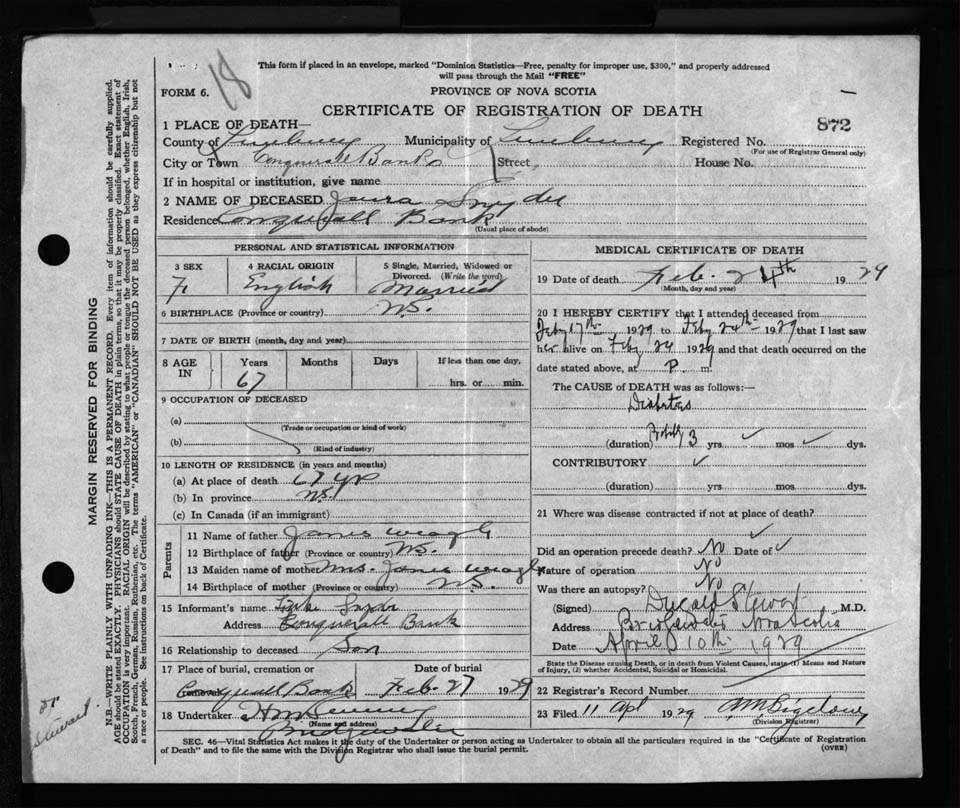 18
This form if placed in an envelope, marked "Dominion Statistics—Free, penalty for improper use, $300," and properly addressed
will pass through the Mail "FREE"
FORM 6.
PROVINCE OF NOVA SCOTIA
CERTIFICATE OF REGISTRATION OF DEATH
872
1 PLACE OF DEATH—
County of Lunenburg Municipality of Lunenburg Registered No.
(For use of Registrar General only)
City or Town Conquerall Bank Street House No.
If in hospital or institution, give name
2 NAME OF DECEASED Snyder
Residence Conquerall Bank
(Usual place of abode)
PERSONAL AND STATISTICAL INFORMATION
3 SEX F
4 RACIAL ORIGIN English
5 Single, Married, Widowed or Divorced. (Write the word) Married
6 BIRTHPLACE (Province or country) N.S.
7 DATE OF BIRTH (month, day and year)
8 AGE IN Years 67 Months Days If less than one day, hrs. or min.
9 OCCUPATION OF DECEASED
(a)
(Trade or occupation or kind of work)
(b)
(Kind of industry)
10 LENGTH OF RESIDENCE (in years and months)
(a) At place of death 67 yr
(b) In province N.S.
(c) In Canada (if an immigrant)
Parents
11 Name of father James Weagle
12 Birthplace of father (Province or country) N.S.
13 Maiden name of mother Mrs. James Weagle
14 Birthplace of mother (Province or country) N.S.
15 Informant's name Snyder
Address Conquerall Bank
16 Relationship to deceased Son
17 Place of burial, cremation or removal Conquerall Bank Date of burial Feb. 27 1929
18 Undertaker
(Name and address)
Bridgewater
MEDICAL CERTIFICATE OF DEATH
19 Date of death Feb. 24th 1929
(Month, day and year)
20 I HEREBY CERTIFY that I attended deceased from
Feby 17th 1929 to Feby 24th 1929 that I last saw
her alive on Feby 24 1929 and that death occurred on the
date stated above, at P. m.
The CAUSE of DEATH was as follows:—
Diabetes
(duration) Probably 3 yrs ✓ mos ✓ dys.
CONTRIBUTORY ✓
(duration) yrs. mos. dys.
21 Where was disease contracted if not at place of death?
✓
Did an operation precede death? No Date of ✓
Nature of operation No
Was there an autopsy? No
(Signed) Dugald Stewart M.D.
Address Bridgewater Nova Scotia
Date April 10th 1929
State the Disease causing Death, or in death from Violent Causes, state (1) Means and Nature
of Injury, (2) whether Accidental, Suicidal or Homicidal.
22 Registrar's Record Number
23 Filed 11 Apl 1929
(Division Registrar)
SEC. 46—Vital Statistics Act makes it the duty of the Undertaker or person acting as Undertaker to obtain all the particulars required in the "Certificate of Registration
of Death" and to file the same with the Division Registrar who shall issue the burial permit.
(OVER)
MARGIN RESERVED FOR BINDING
N.B.—WRITE PLAINLY WITH UNFADING INK—THIS IS A PERMANENT RECORD. Every item of information should be carefully supplied.
AGE should be stated EXACTLY. PHYSICIANS should STATE CAUSE OF DEATH in plain terms, so that it may be properly classified. Exact statement of
OCCUPATION is very important. RACIAL ORIGIN will be described by stating to what people or tongue the deceased person belonged, whether English, Irish,
Scotch, French, German, Russian, Ruthenian, etc. The terms "AMERICAN" or "CANADIAN" SHOULD NOT BE USED as they express citizenship but not
a race or people. See instructions on back of Certificate.
Stewart